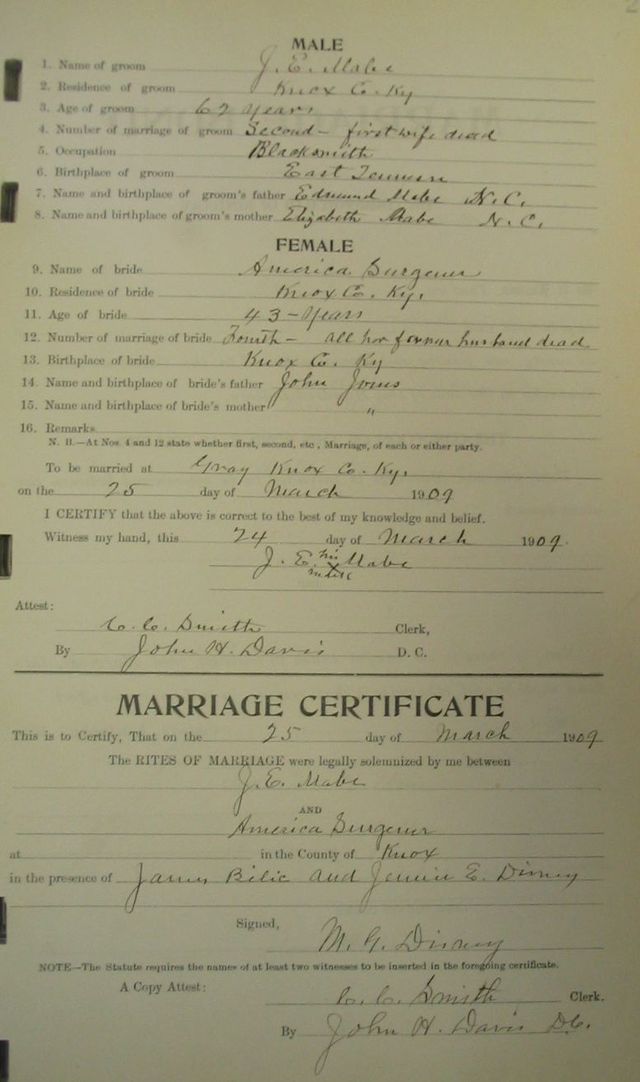 MALE
1. Name of groom J. E. Mabe
2. Residence of groom Knox Co. Ky
3. Age of groom 62 years
4. Number of marriage of groom Second – first wife dead
5. Occupation Blacksmith
6. Birthplace of groom East Tennessee
7. Name and birthplace of groom's father Edmund Mabe N.C.
8. Name and birthplace of groom's mother Elizabeth Mabe N.C.
FEMALE
9. Name of bride America Surgener
10. Residence of bride Knox Co. Ky.
11. Age of bride 43 – years
12. Number of marriage of bride Fourth – all her former husband dead
13. Birthplace of bride Knox Co. Ky
14. Name and birthplace of bride's father John Jones
15. Name and birthplace of bride's mother "
16. Remarks
N. B.—At Nos. 4 and 12 state whether first, second, etc., Marriage, of each or either party.
To be married at Gray Knox Co. Ky.
on the 25 day of March 1909
I CERTIFY that the above is correct to the best of my knowledge and belief.
Witness my hand, this 24 day of March 1909.
J. E. his x mark Mabe
Attest:
C. C. Smith Clerk,
By John H. Davis D. C.
MARRIAGE CERTIFICATE
This is to Certify, That on the 25 day of March 1909
The RITES OF MARRIAGE were legally solemnized by me between
J. E. Mabe
AND
America Surgener
at in the County of Knox
in the presence of James and Jennie E. Disney
Signed,
M. G. Disney
NOTE—The Statute requires the names of at least two witnesses to be inserted in the foregoing certificate.
A Copy Attest:
C. C. Smith Clerk.
By John H. Davis D.C.